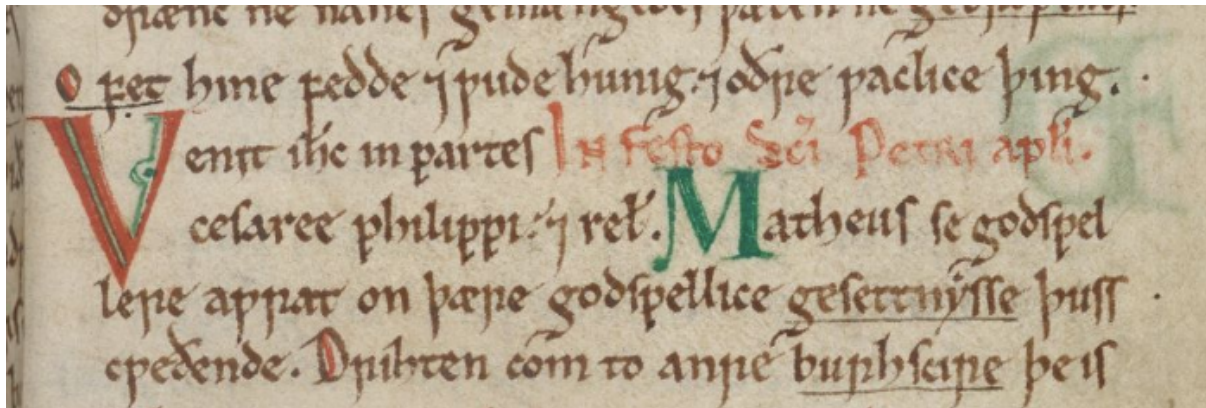 ƿæt hine fedde ⁊ ƿude hunig. ⁊ oðre ƿaclice þing.
Uenit ihc in partes In festo Sci Petri apli.
cesaree philippi. ⁊ rel. Matheus se godspel
lere aƿrat on þære godspellice gesettnysse þuss
cƿeðende. Drihten com to anre burhscire þe is